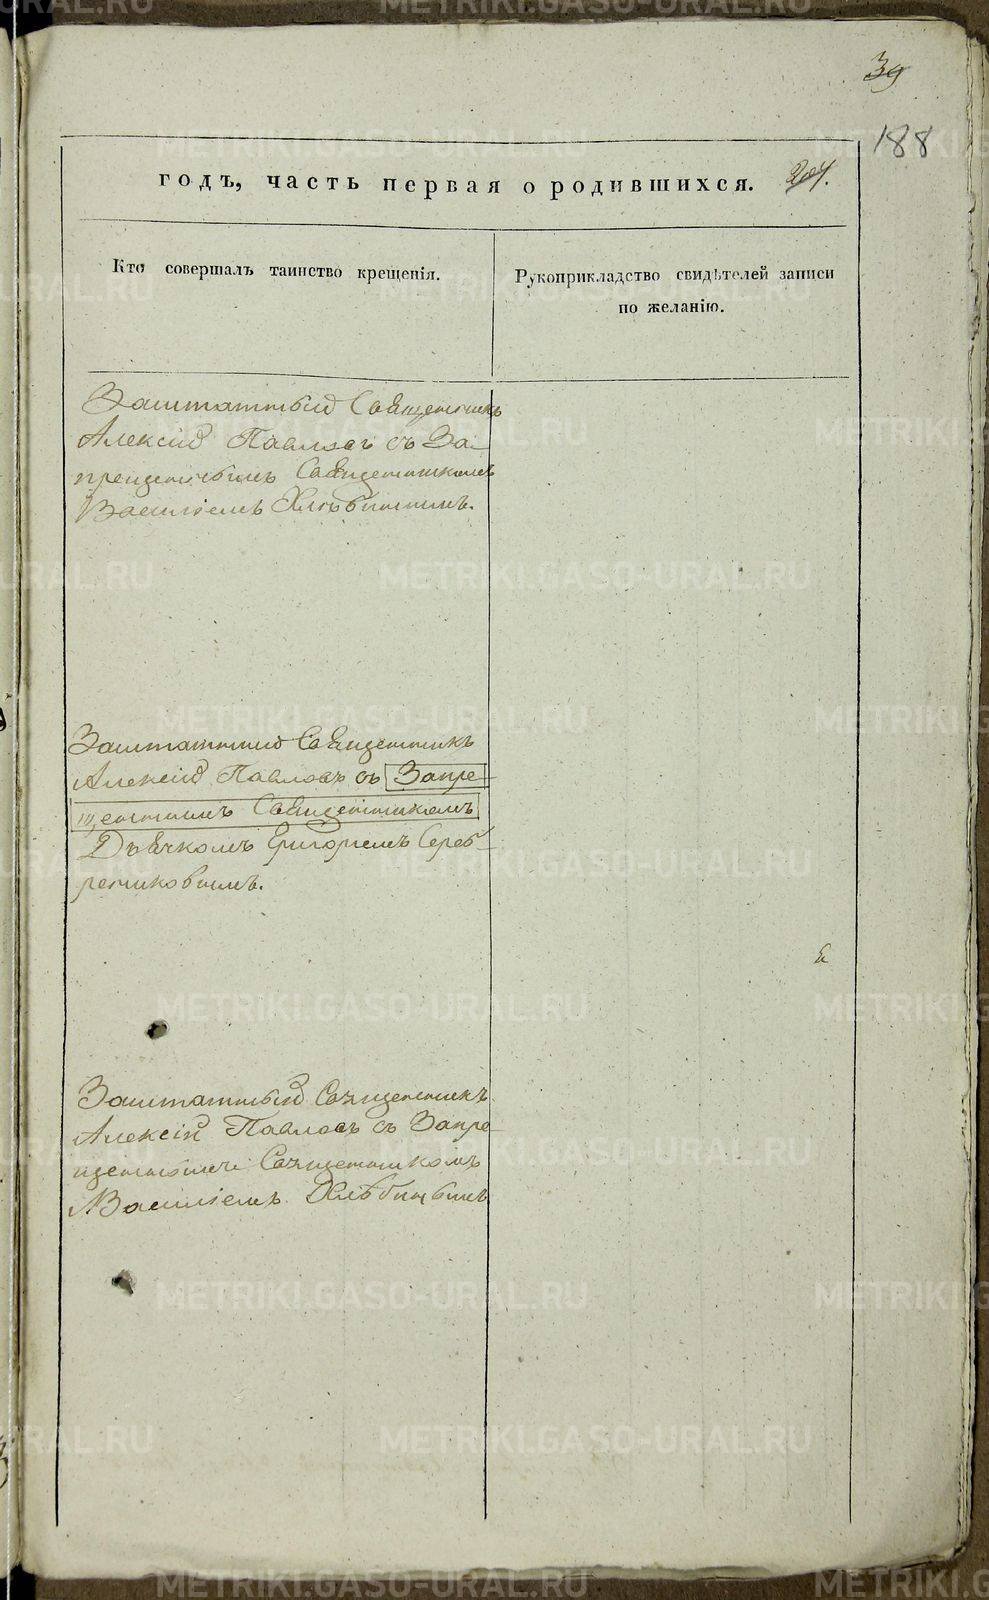 39
188
годъ, часть первая о родившихся. 204.
Кто совершалъ таинство крещенія.
Рукоприкладство свидѣтелей записи
по желанію.
Заштатный Священникъ
Алексій Павловъ съ За-
прещеннымъ Священникомъ
Василіемъ Хлѣбинымъ.
Заштатный Священникъ
Алексій Павловъ съ Запре
щеннымъ Священникомъ
Дьячкомъ Григоріемъ Сереб-
рениковымъ.
Заштатный Священникъ
Алексій Павловъ съ Запре
щеннымъ Священникомъ
Василіемъ
METRIKI.GASO-URAL.RU